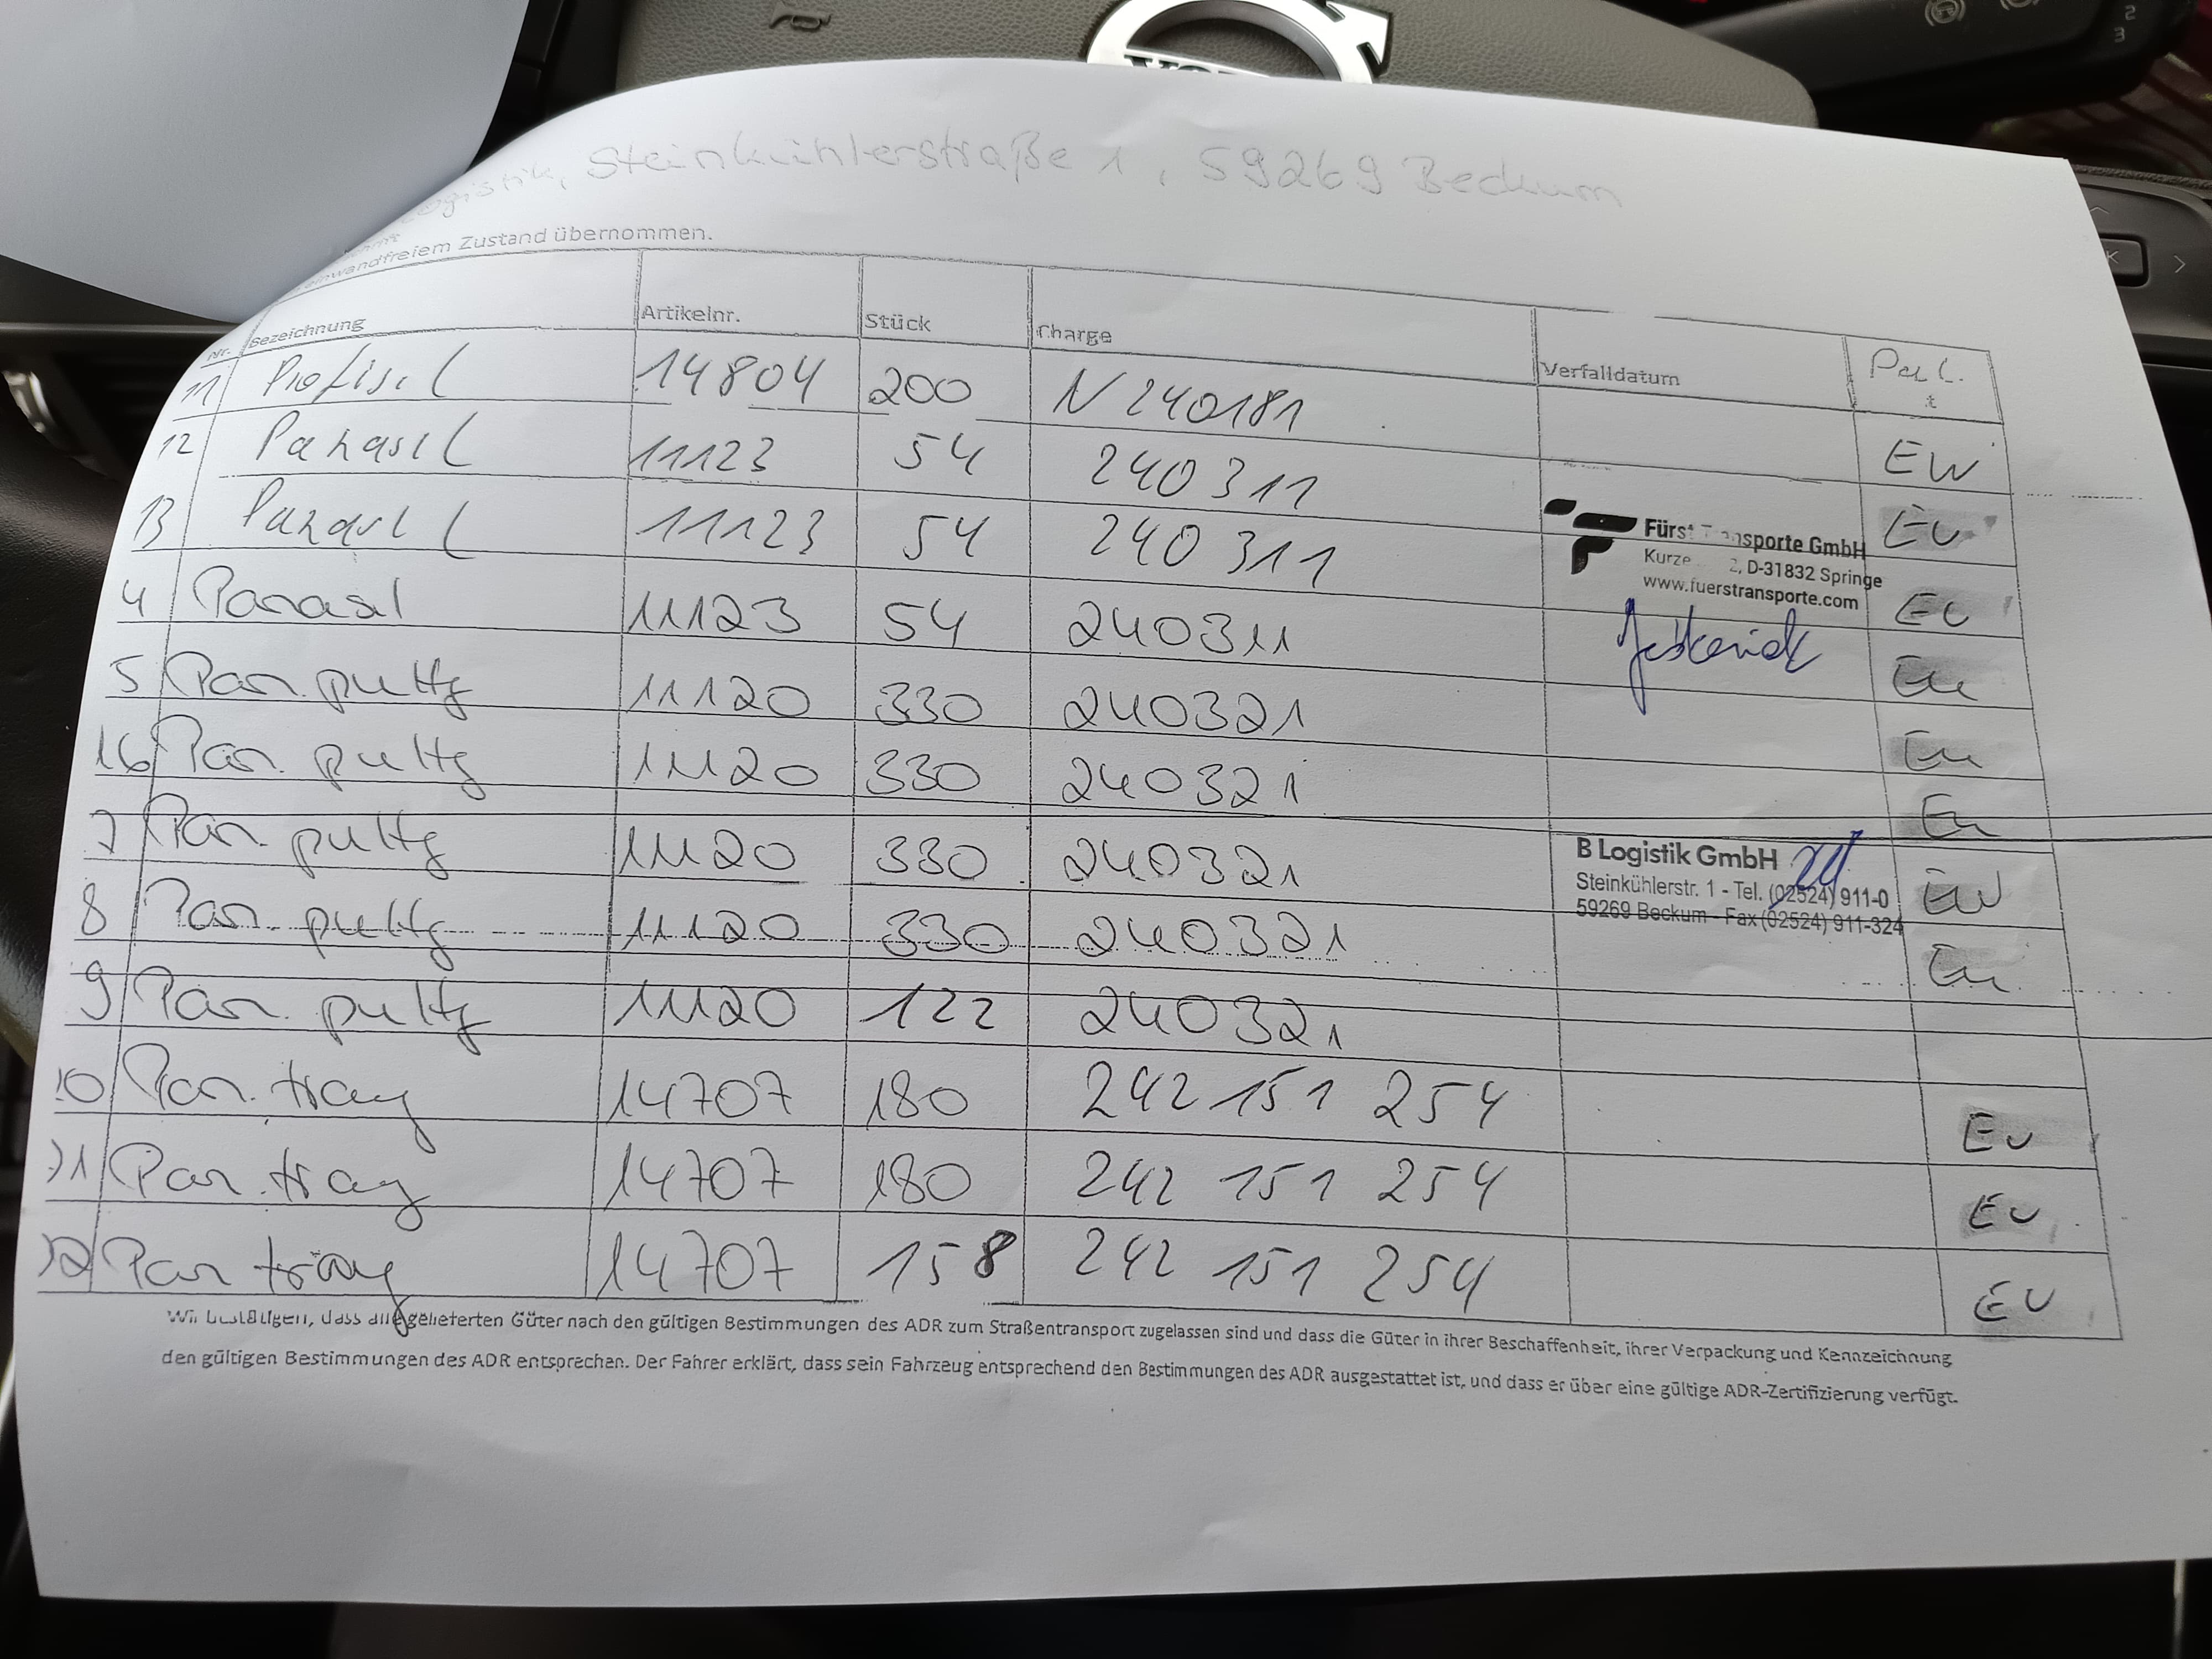 Logistik, Steinkühlerstraße 1, 59269 Beckum
einwandfreiem Zustand übernommen.
Nr. Bezeichnung Artikelnr. Stück Charge Verfalldatum Pal.
11 Profisil 14804 200 N240181 EW
12 Panasil 11123 54 240311 EW
13 Panasil 11123 54 240311 EW
4 Panasil 11123 54 240311 EW
5 Pan. putty 11120 330 240321 EW
16 Pan. putty 11120 330 240321 EW
7 Pan. putty 11120 330 240321 EW
8 Pan. putty 11120 330 240321 EW
9 Pan. putty 11120 122 240321
10 Pan. tray 14707 180 242 151 254 EW
21 Pan. tray 14707 180 242 151 254 EW
22 Pan tray 14707 158 242 151 254 EW
Fürst Transporte GmbH
Kurze 2, D-31832 Springe
www.fuerstransporte.com
B Logistik GmbH
Steinkühlerstr. 1 - Tel. (02524) 911-0
59269 Beckum - Fax (02524) 911-324
Wir bestätigen, dass alle gelieferten Güter nach den gültigen Bestimmungen des ADR zum Straßentransport zugelassen sind und dass die Güter in ihrer Beschaffenheit, ihrer Verpackung und Kennzeichnung
den gültigen Bestimmungen des ADR entsprechen. Der Fahrer erklärt, dass sein Fahrzeug entsprechend den Bestimmungen des ADR ausgestattet ist, und dass er über eine gültige ADR-Zertifizierung verfügt.